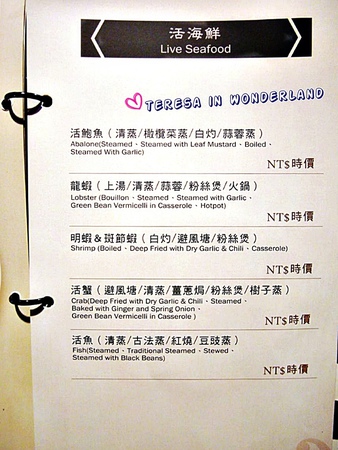 活海鮮
Live Seafood
TERESA IN WONDERLAND
活鮑魚（清蒸/橄欖菜蒸/白灼/蒜蓉蒸）
Abalone(Steamed、Steamed with Leaf Mustard、Boiled、
Steamed With Garlic)
NT$時價
龍蝦（上湯/清蒸/蒜蓉/粉絲煲/火鍋）
Lobster (Bouillon、Steamed、Steamed with Garlic、
Green Bean Vermicelli in Casserole、Hotpot)
NT$時價
明蝦&斑節蝦（白灼/避風塘/粉絲煲）
Shrimp (Boiled、Deep Fried with Dry Garlic & Chili、Casserole)
NT$時價
活蟹（避風塘/清蒸/薑蔥焗/粉絲煲/樹子蒸）
Crab(Deep Fried with Dry Garlic & Chili、Steamed、
Baked with Ginger and Spring Onion、
Green Bean Vermicelli in Casserole )
NT$時價
活魚（清蒸/古法蒸/紅燒/豆豉蒸）
Fish(Steamed、Traditional Steamed、Stewed、
Steamed with Black Beans)
NT$時價